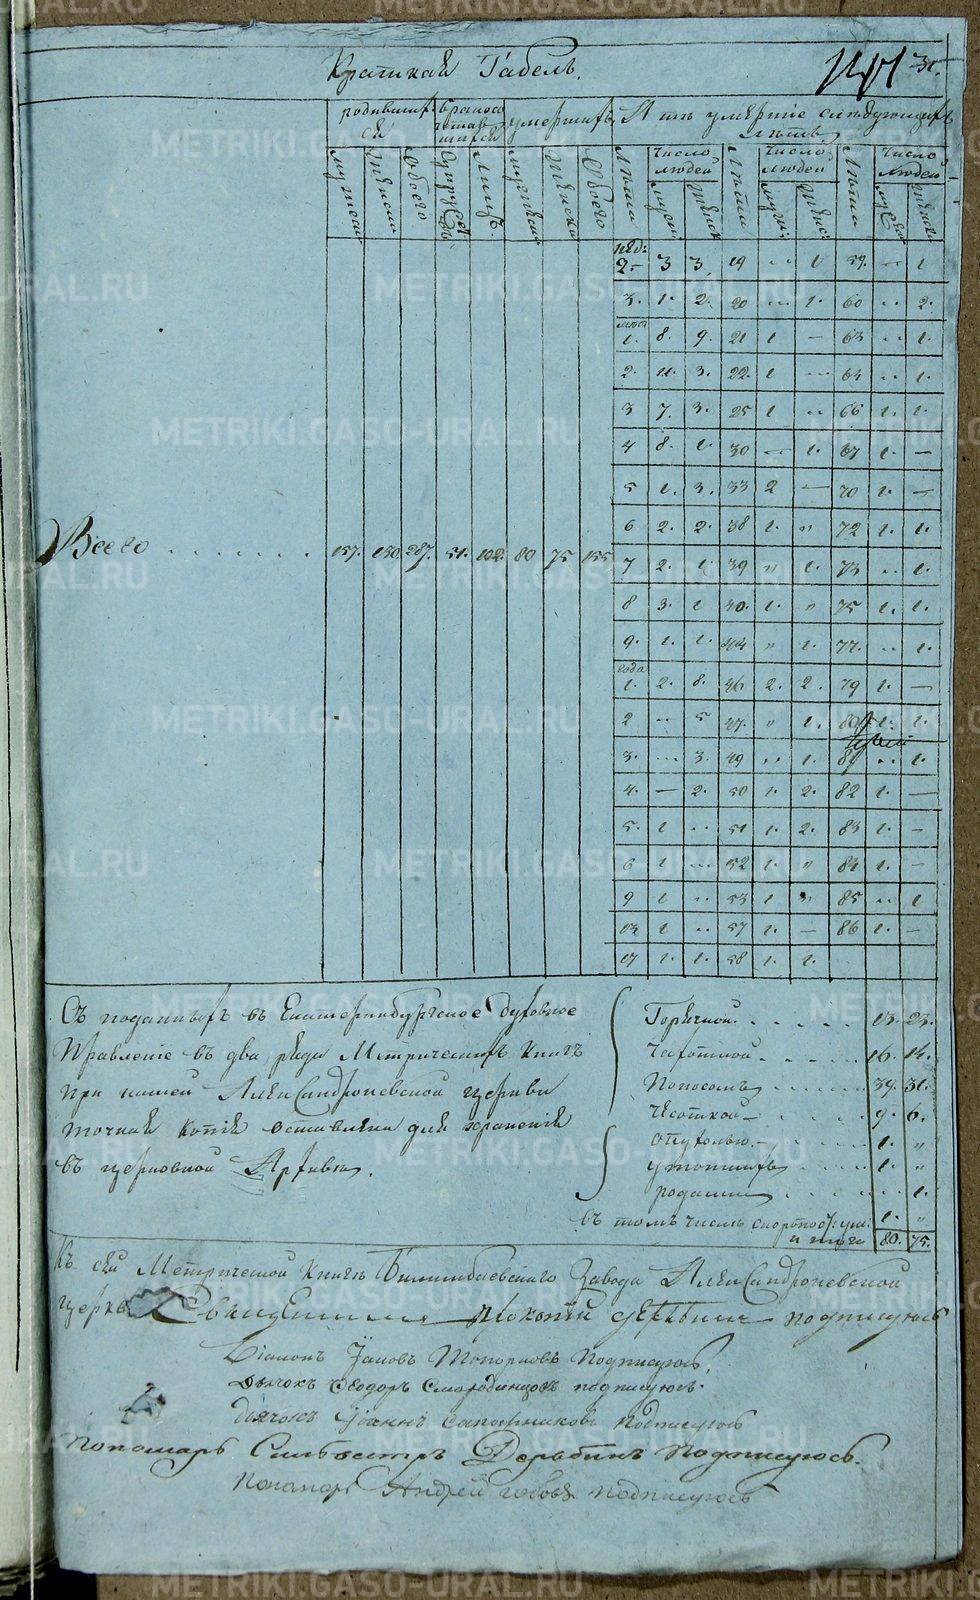 Краткая Табель.
31.
родивших ся
умерших
А тѣ умертіе слѣдующихъ лѣтъ
число людей
число людей
число людей
мужеска женска обоего
лицъ.
мужеска женска обоего
Лѣта муж: женск Лѣта муж: женс: Лѣта женск
нед:
2 - 3 3 19 .. 1 59. .. 1
3. 1. 2. 20 ... 1. 60 .. 2.
1. 8. 9. 21 1 — 63 .. 1.
2. 11. 3. 22. 1 ... 64 .. 1.
3 7. 3. 25 1 .. 66 1. 1.
4 8. 1. 30 — 1. 67 1. —
5 1. 3. 33 2 — 70 1. —
6 2. 2. 38 1. " 72 1. 1.
7 2. 1. 39 " 1. 73 .. 1.
Всего . . . . . . . 157. 130. 287. 51. 102. 80 75 155
8 3. 1 40. 1. " 75 1. 1.
9. 1. 1. 44 " 1. 77. .. 1.
года
1. 2. 8. 46 2. 2. 79 1. —
2 .. 5 47. " 1. 80 1. 1.
3. ... 3. 49 .. 1. 81 .. 1.
4. — 2. 50 1. 2. 82 1. —
5. 1 .. 51 1. 2. 83 1. -
6 1 ... 52 1. " 84 1. -
9 1 .. 53 1 " 85 .. 1
13. 1 .. 57 1. - 86 1. -
17 1. 1. 58 1. 1.
Съ поданныхъ въ Екатеринбургское духовное
Правленіе въ два ряда Метрическихъ книгъ
при нашей Александроневской церкви
точная копія оставлена для храненія
въ церковной Архивѣ.
Горячкой. . . . . . 13. 23.
Чахоткой . . . . . 16. 14.
Поносомъ . . . . . 39. 31.
. . . . . 9. 6.
опухолью . . . . . 1. "
утопшихъ . . . . 1. "
родами . . . . . .. 1.
въ томъ числѣ скоропос: ум: 1. "
и того 80. 75.
Къ сей Метрической Книгѣ Билимбаевскаго Завода Александроневской
церкви Священникъ Прокопій Дерябинъ подписуюсь
Діаконъ Іаковъ Топорковъ Подписуюсь.
Дьячокъ Ѳеодоръ Смородинцовъ подписуюсь.
Дьячокъ Іоаннъ Сапожниковъ подписуюсь
Пономарь Сильвестръ Дерябинъ Подписуюсь.
Пономарь Андрей подписуюсь
METRIKI.GASO-URAL.RU